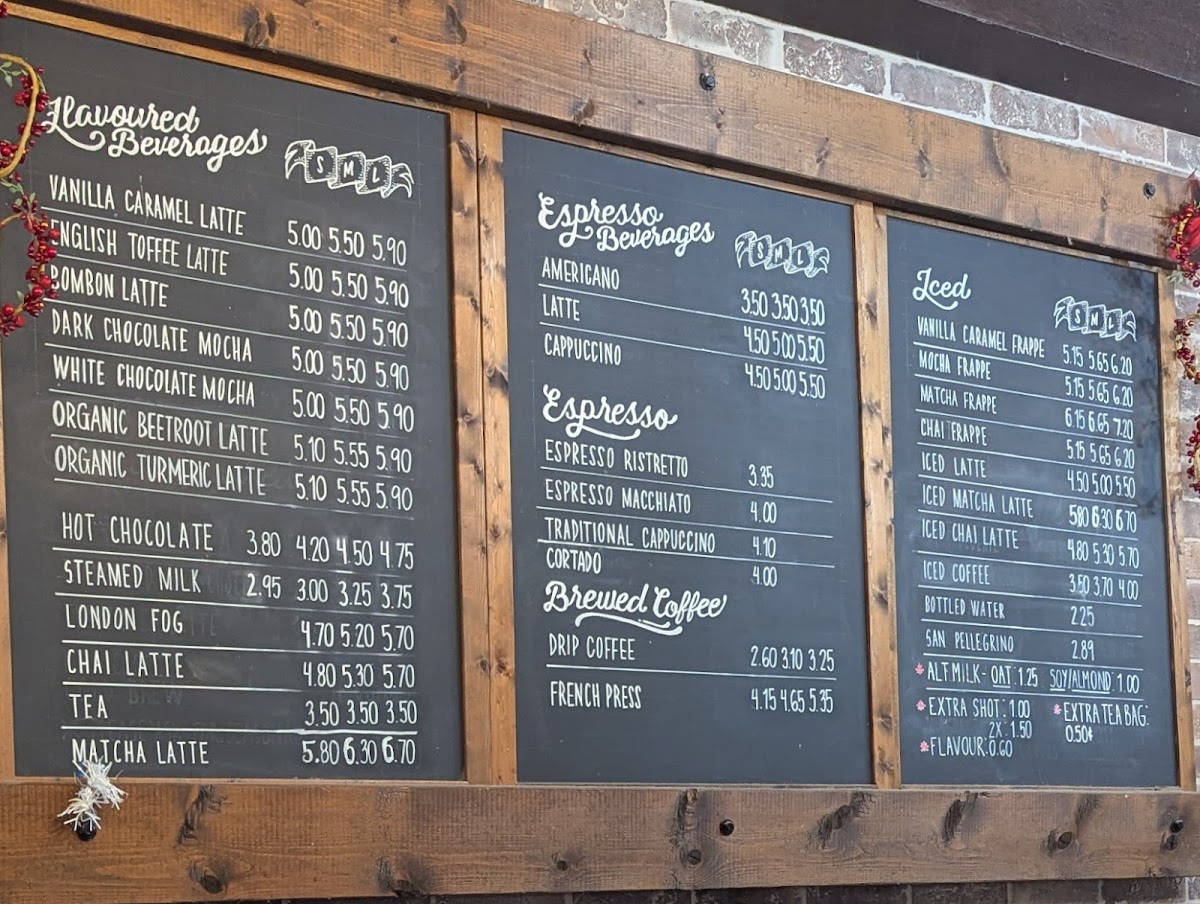 Flavoured
Beverages
S M L
VANILLA CARAMEL LATTE 5.00 5.50 5.90
ENGLISH TOFFEE LATTE 5.00 5.50 5.90
BOMBON LATTE 5.00 5.50 5.90
DARK CHOCOLATE MOCHA 5.00 5.50 5.90
WHITE CHOCOLATE MOCHA 5.00 5.50 5.90
ORGANIC BEETROOT LATTE 5.10 5.55 5.90
ORGANIC TURMERIC LATTE 5.10 5.55 5.90
HOT CHOCOLATE 3.80 4.20 4.50 4.75
STEAMED MILK 2.95 3.00 3.25 3.75
LONDON FOG 4.70 5.20 5.70
CHAI LATTE 4.80 5.30 5.70
TEA 3.50 3.50 3.50
MATCHA LATTE 5.80 6.30 6.70
Espresso
Beverages
S M L
AMERICANO 3.50 3.50 3.50
LATTE 4.50 5.00 5.50
CAPPUCCINO 4.50 5.00 5.50
Espresso
ESPRESSO RISTRETTO 3.35
ESPRESSO MACCHIATO 4.00
TRADITIONAL CAPPUCCINO 4.10
CORTADO 4.00
Brewed Coffee
DRIP COFFEE 2.60 3.10 3.25
FRENCH PRESS 4.15 4.65 5.35
Iced
S M L
VANILLA CARAMEL FRAPPE 5.15 5.65 6.20
MOCHA FRAPPE 5.15 5.65 6.20
MATCHA FRAPPE 6.15 6.65 7.20
CHAI FRAPPE 5.15 5.65 6.20
ICED LATTE 4.50 5.00 5.50
ICED MATCHA LATTE 5.80 6.30 6.70
ICED CHAI LATTE 4.80 5.30 5.70
ICED COFFEE 3.50 3.70 4.00
BOTTLED WATER 2.25
SAN PELLEGRINO 2.89
ALT MILK - OAT: 1.25 SOY/ALMOND: 1.00
EXTRA SHOT: 1.00
2X: 1.50
FLAVOUR: 0.60
EXTRA TEA BAG:
0.50¢